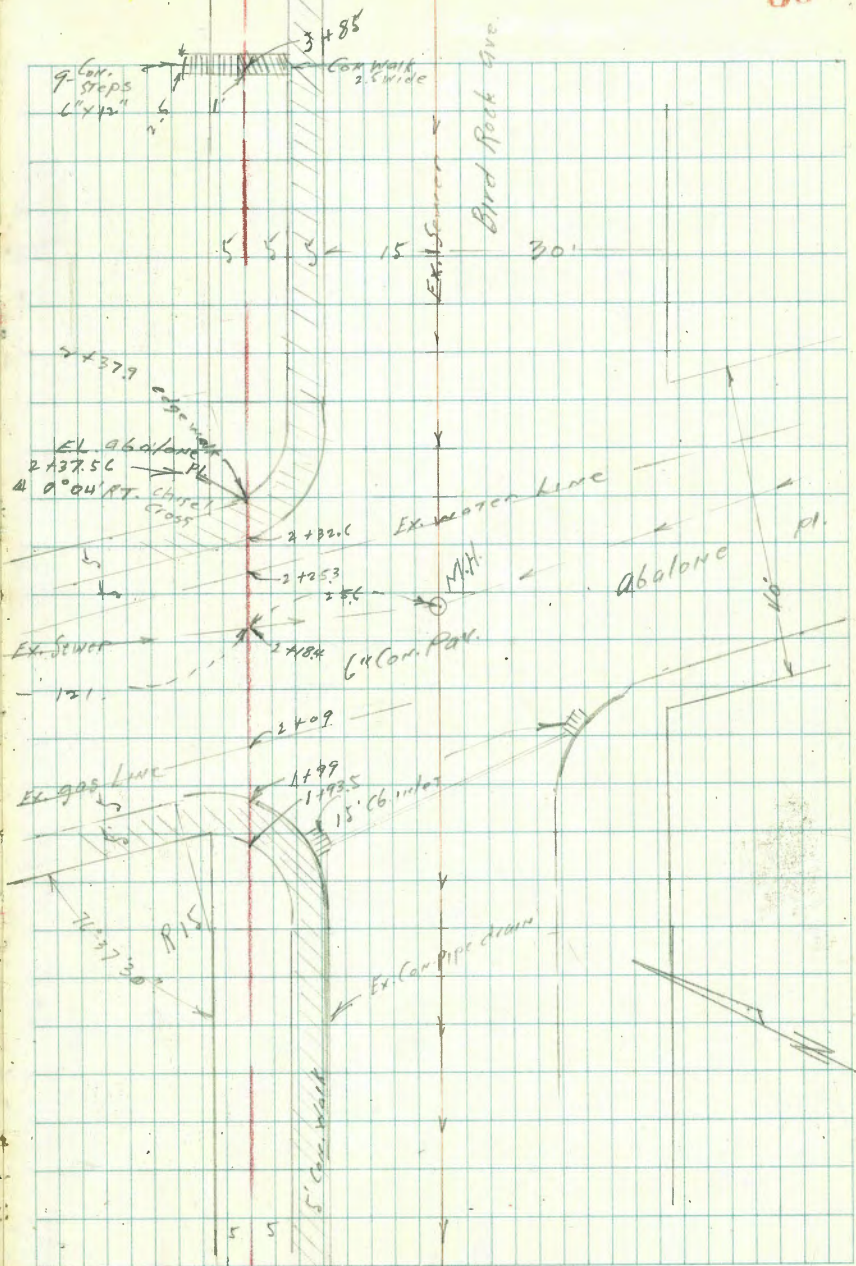 3+85
9-Con.
Steps
6"x12"
2.5
1'
Con Walk
2.5 wide
Bird Rock Ave.
Ex. Sewer
5 5 5 15 30'
2+37.9
edge walk
EL. abalone PL
2+37.56
Δ 0°04' RT. Chisel
Cross
2+32.6
Ex. Water Line
2+25.3
5
25.6
M.H.
abalone pl.
40'
Ex. Sewer
2+18.4
6" Con. Pav.
121.
2+09
Ex. gas Line
1+99
1+93.5
15' Cb. inlet
5
5
R15
76°37'30"
Ex. Con. Pipe drain
N
5' Con. Walk
5 5